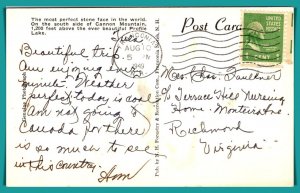 The most perfect stone face in the world.
On the south side of Cannon Mountain,
1,200 feet above the ever beautiful Profile
Lake.
Post Card
AUG 10
5 PM
CENT
Beautiful trip.
Am enjoying every
minute. Weather
perfect today is cool
Am not going to
Canada for there
is so much to see
in this country.
Mrs. Chas. Faulkner
Terrace Hill Nursing
Home - Monteiro Ave
Richmond
Virginia